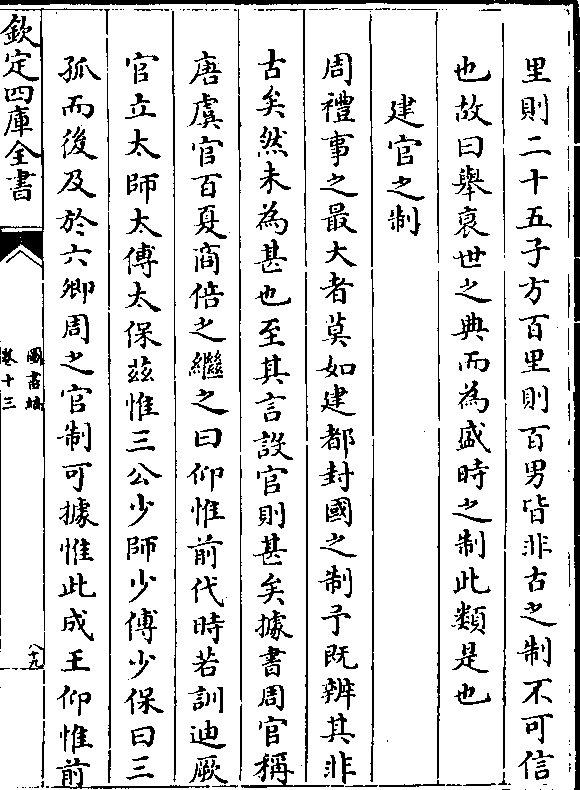 里則二十五子方百里則百男皆非古之制不可信
也故曰舉衰世之典而為盛時之制此類是也
建官之制
周禮事之最大者莫如建都封國之制予既辨其非
古矣然未為甚也至其言設官則甚矣據書周官稱
唐虞官百夏商倍之繼之曰仰惟前代時若訓迪厥
官立太師太傅太保茲惟三公少師少傅少保曰三
孤而後及於六卿周之官制可據惟此成王仰惟前
欽定四庫全書
圖書編
卷十三
八十九